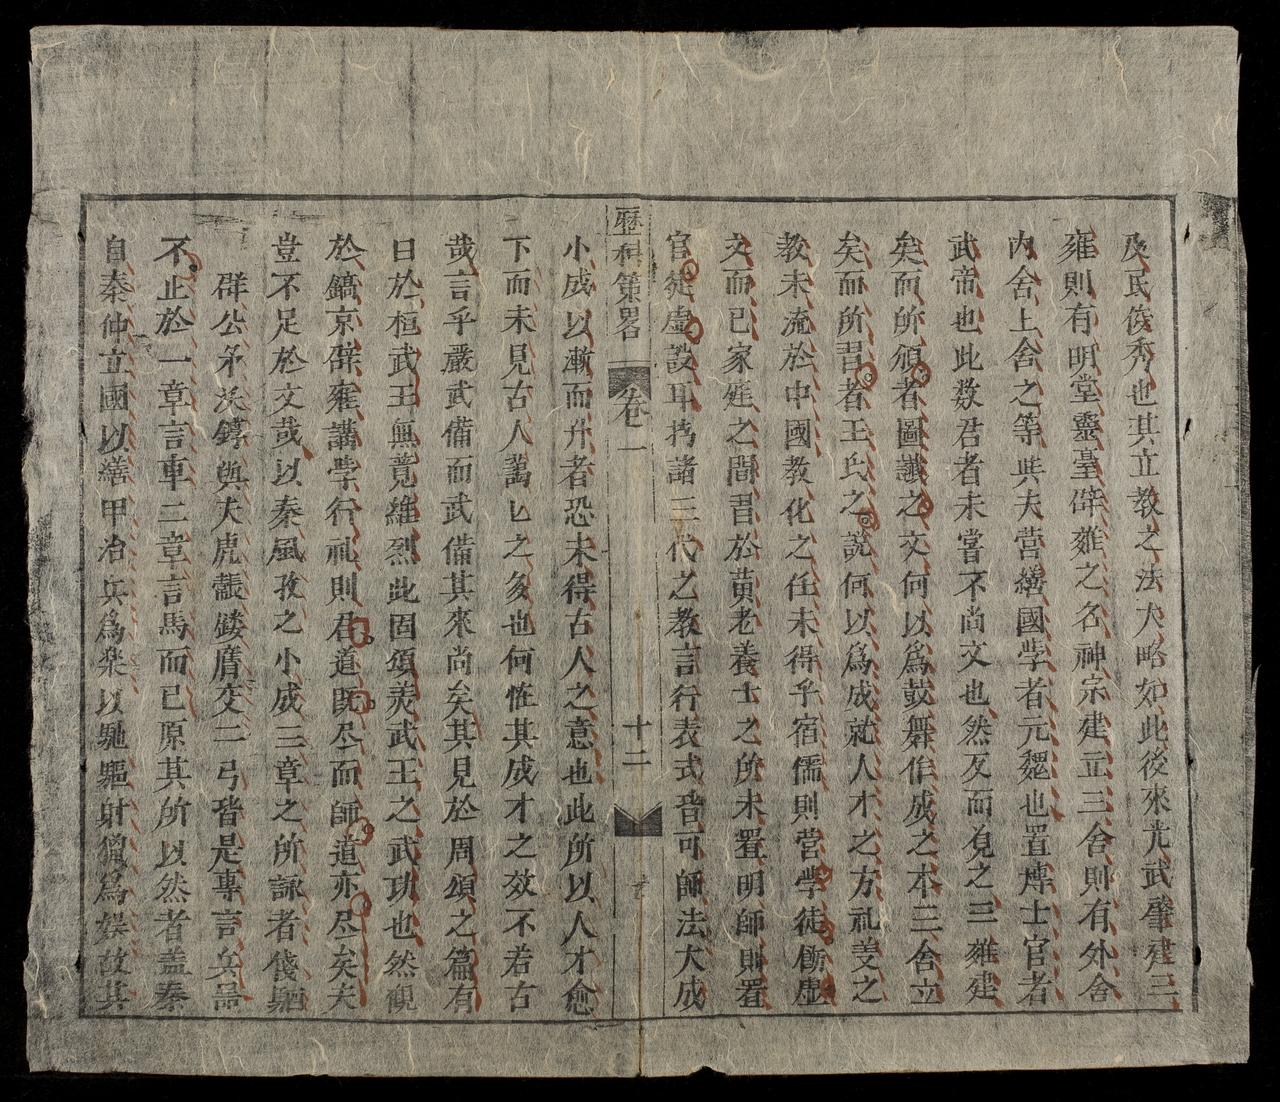 及民俊秀也其立教之法大略如此後來光武肇建三
雍則有明堂靈臺辟雍之名神宗建立三舍則有外舍
內舍上舍之等與夫营繕國學者元魏也置博士官者
武帝也此数君者未嘗不尚文也然反而覌之三雍建
矣而所頒者圖讖之文何以為鼓舞作成之本三舍立
矣而所習者王氏之說何以為成就人才之方礼美之
教未流於中國教化之任未得乎宿儒則营學徒虚
文而已家庭之間習於黄老養士之所未置明師則置
官徒虚設耳揆諸三代之教言行表式皆可師法大成
歷科策畧 卷一 十二
小成以漸而升者恐未得古人之意也此所以人才愈
下而未見古人萬匕之多也何恠其成才之效不若古
哉言乎嚴武備而武備其來尚矣其見於周頌之篇有
曰於桓武王無競維烈此固頌美武王之武功也然觀
於鎬京辟雍講學行礼則君道既尽而師道亦尽矣夫
豈不足於文哉以秦風孜之小戎三章之所詠者俴駟
群公矛沃錞與夫虎韔鏤膺交二弓皆是專言兵噐
不止於一章言車二章言馬而已原其所以然者盖秦
自秦仲立國以繕甲治兵為樂以馳驅射獵為娱故其